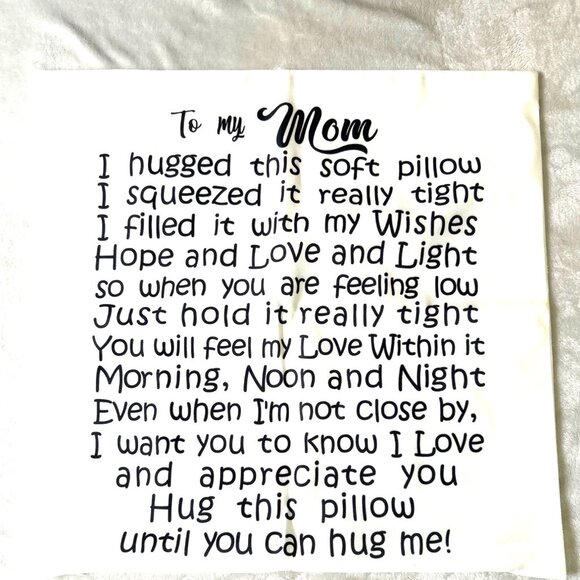 To my Mom
I hugged this soft pillow
I squeezed it really tight
I filled it with my Wishes
Hope and Love and Light
so when you are feeling low
Just hold it really tight
You will feel my Love Within it
Morning, Noon and Night
Even when I'm not close by,
I want you to know I Love
and appreciate you
Hug this pillow
until you can hug me!